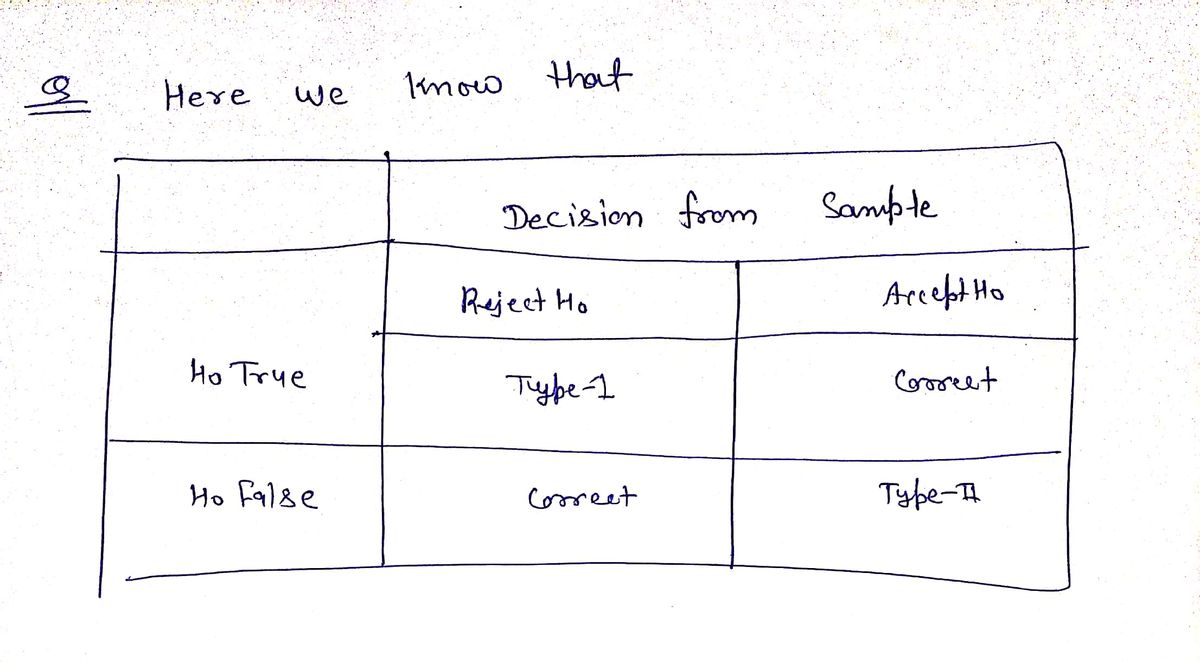 Q Here we know that
Decision from Sample
Reject Ho Accept Ho
Ho True Type-1 Correct
Ho False Correct Type-II